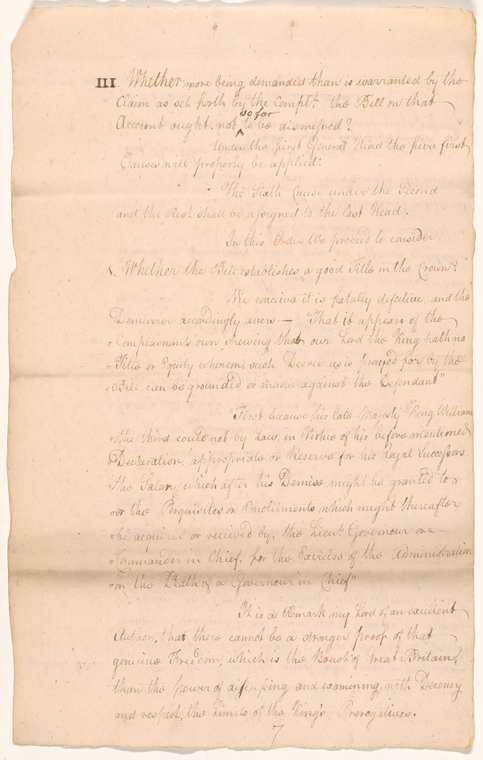 III. Whether more being demanded than is warranted by the
Claim as set forth by the Complt. the Bill on that
so far
Account ought not ^ to be dismissed?
Under the first General Head the five first
Causes will properly be applied:
The Sixth Cause under the Second
and the Rest shall be assigned to the last Head.
In this Order We proceed to consider
1. Whether the Bill establishes a good Title in the Crown?
We conceive it is fatally defective, and the
Demurrer accordingly avers — That it appears of the
"Complainants own shewing that our Lord the King hath no
"Title or Equity whereon such Decree as is prayed for by the
"Bill can be grounded or made against the Defendant"
First because his late Majesty King William
"the third could not by Law, in Virtue of his before mentioned
"Declaration, appropriate or Reserve for his Royal Successors
"the Salary which after his Demise might be granted to
"or the Perquisites or Emoluments which might thereafter
"be acquired or received by, the Lieut. Governour or
"Commander in Chief, for the Exercise of the Administration
"on the Death of a Governour in Chief"
It is a Remark my Lord of an excellent
Author, that there cannot be a stronger proof of that
genuine Freedom, which is the Boast of Great Britain,
than the power of discussing and examining, with Decency
and respect, the Limits of the King's Prerogatives.
7